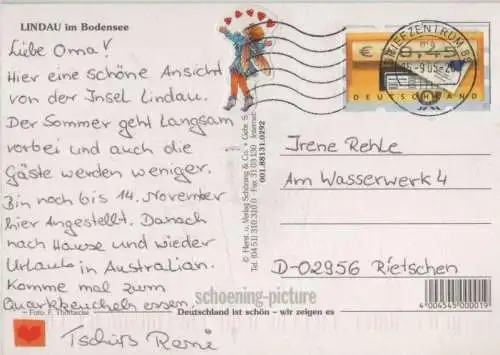 LINDAU im Bodensee
Liebe Oma!
Hier eine schöne Ansicht
von der Insel Lindau.
Der Sommer geht langsam
vorbei und auch die
Gäste werden weniger.
Bin noch bis 14. November
hier Angestellt. Danach
nach Hause und wieder
Urlaub in Australian.
Komme mal zum
Quarkkeucheln essen.
Tschüß René
– Foto: F. Thorbecke
Deutschland ist schön – wir zeigen es
© Herst. u. Verlag Schöning & Co. + Gebr. S
Tel. (04 51) 310 310 0 · Fax 31 03 130 · Internet:
001.88131.0292
schoening-picture
BRIEFZENTRUM 88
€
DEUTSCHLAND
Irene Rehle
Am Wasserwerk 4
D-02956 Rietschen
4 004545 000019